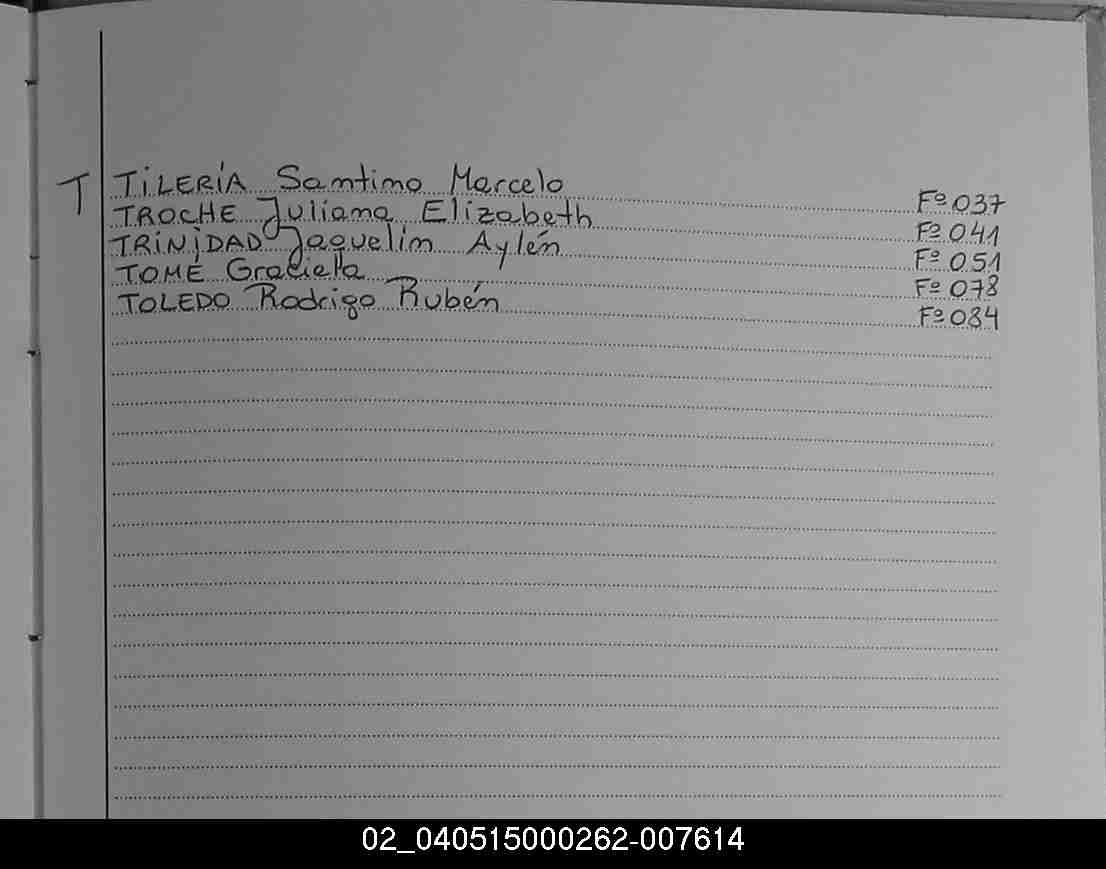 T TILERÍA Santino Marcelo Fº 037
TROCHE Juliana Elizabeth Fº 041
TRINIDAD Jaquelin Aylén Fº 051
TOMÉ Graciela Fº 078
TOLEDO Rodrigo Rubén Fº 084
02_040515000262-007614